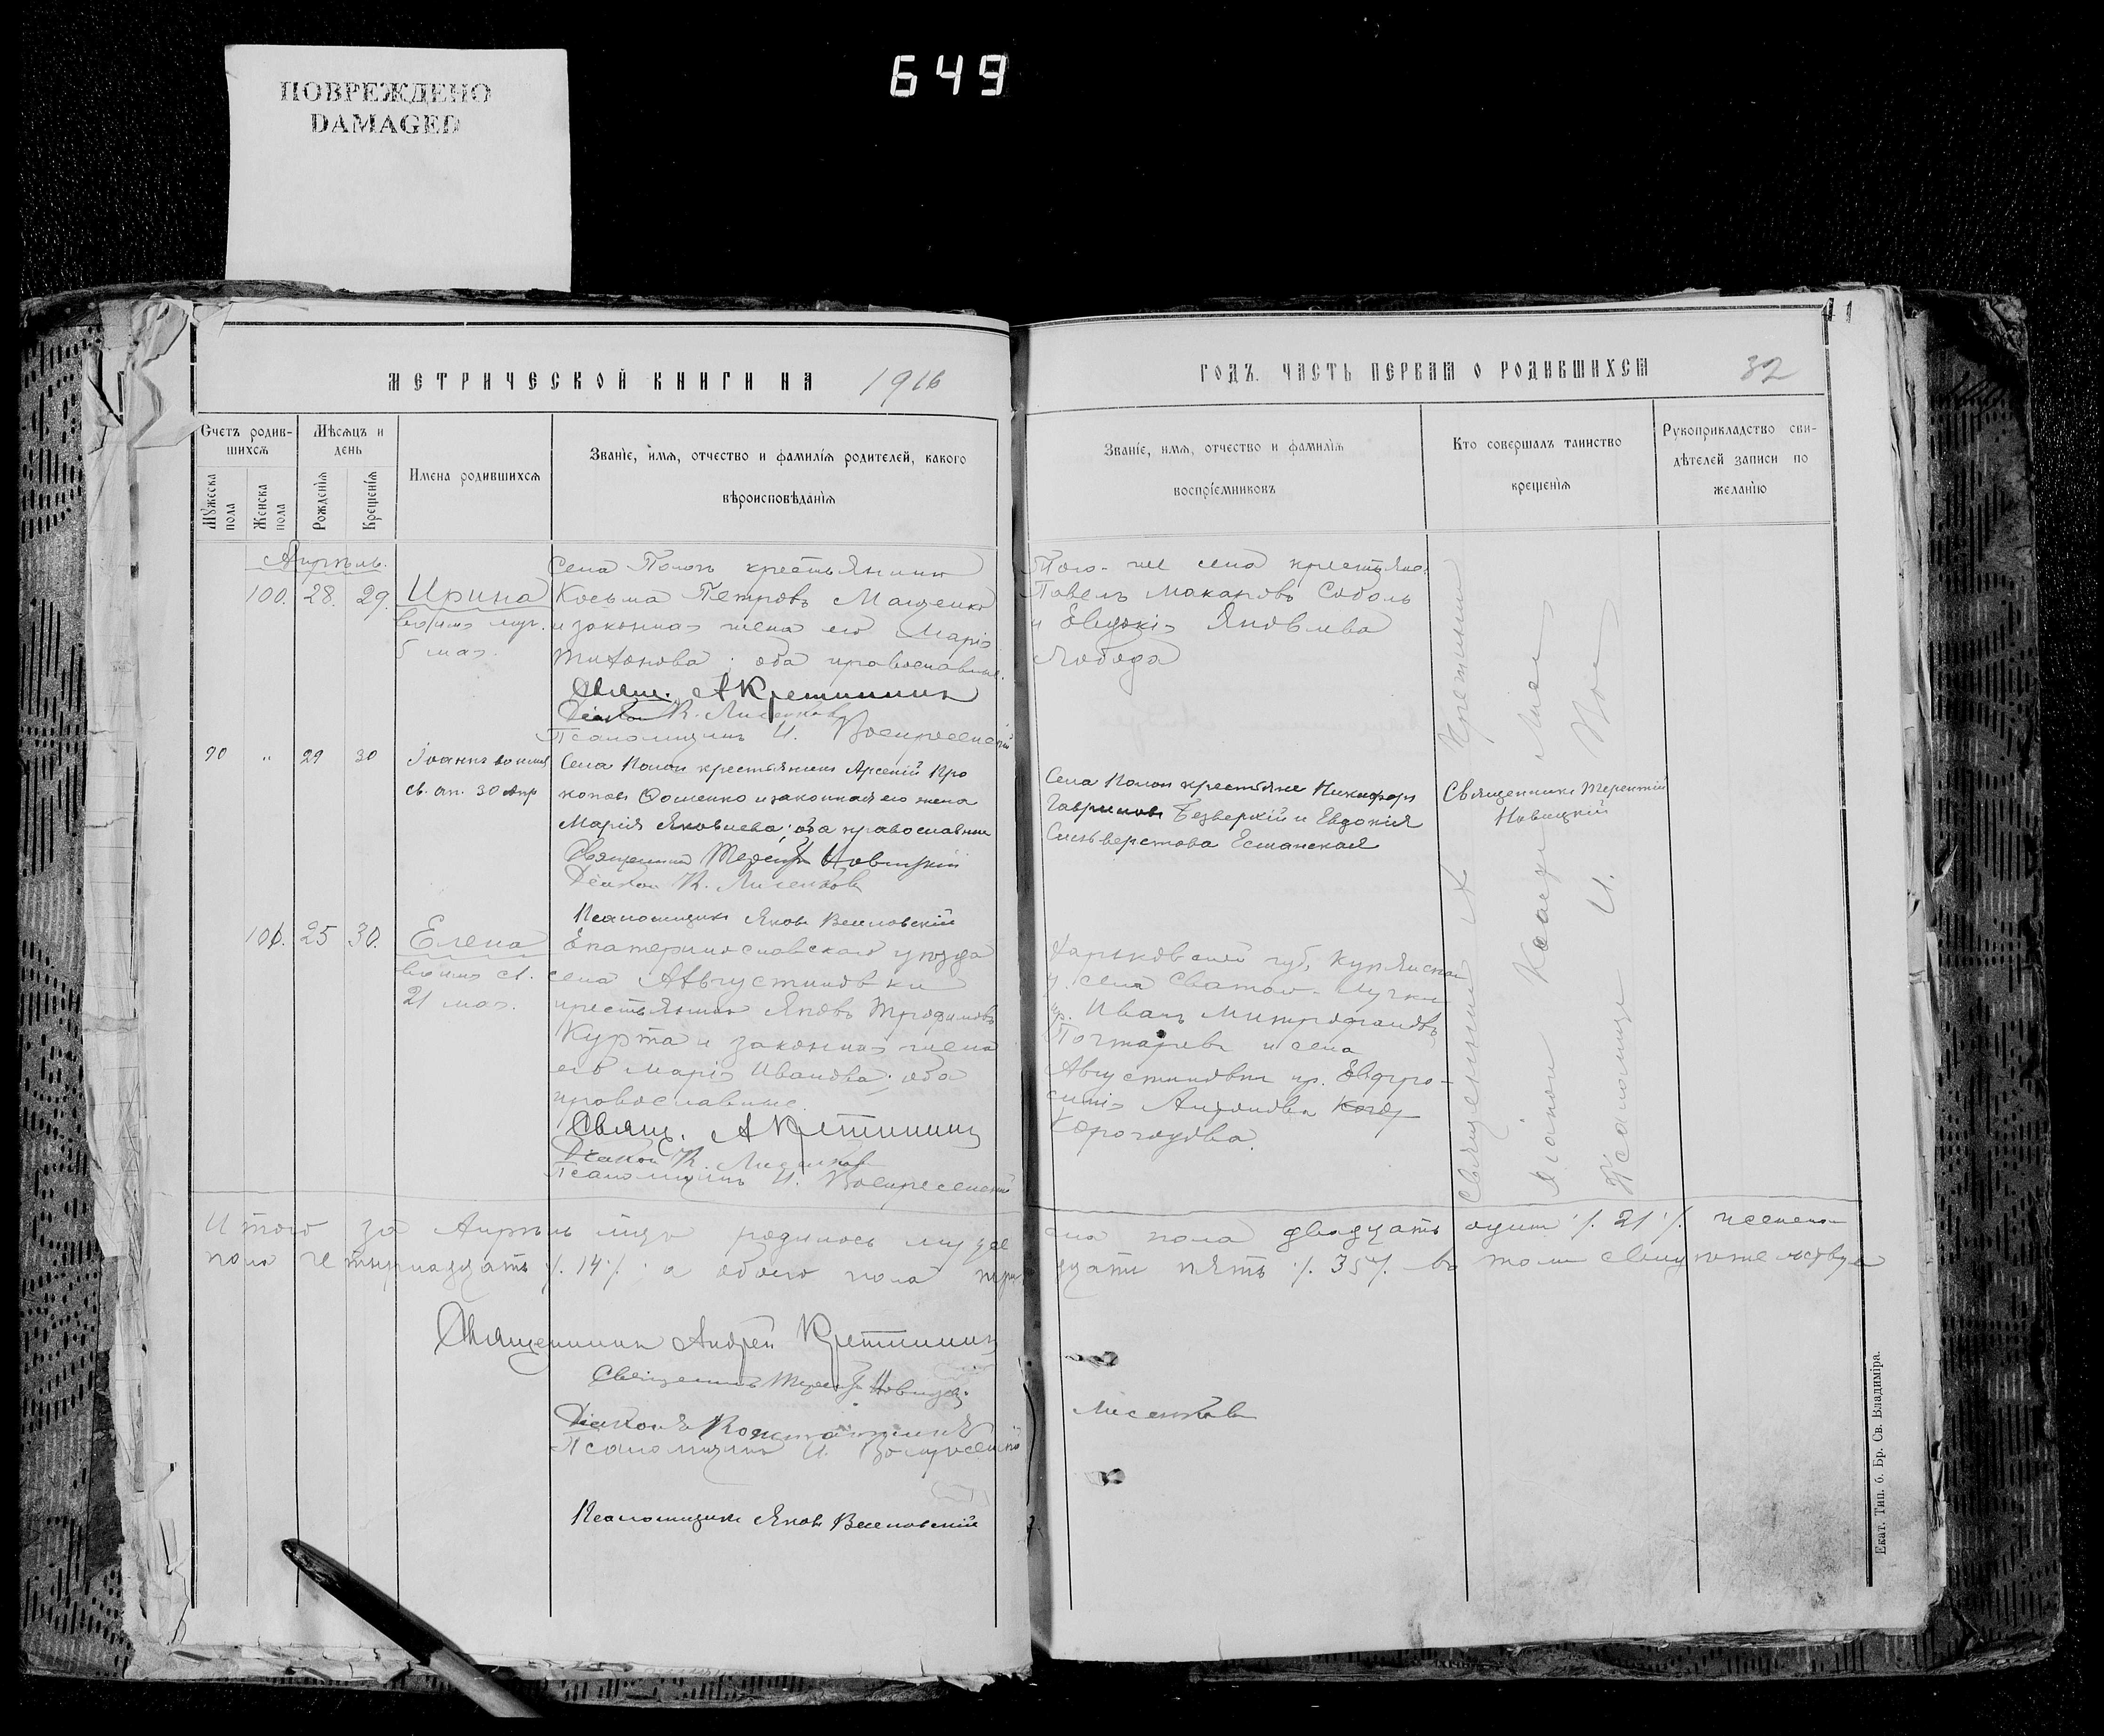 649
ПОВРЕЖДЕНО
DAMAGED
МЕТРИЧЕСКОЙ КНИГИ НА 1916
ГОДЪ. ЧАСТЬ ПЕРВАЯ О РОДИВШИХСЯ 32
Счетъ родив-
шихся
Мужеска пола
Женска пола
Мѣсяцъ и
день
Рожденія
Крещенія
Имена родившихся
Званіе, имя, отчество и фамилія родителей, какого
вѣроисповѣданія
Званіе, имя, отчество и фамилія
воспріемниковъ
Кто совершалъ таинство
крещенія
Рукоприкладство сви-
дѣтелей записи по
желанію
Апрѣль.
100. 28. 29.
Ирина
во имя муч.
5 мая.
Села Пологъ крестьянинъ
Косьма Петровъ Маценко
и законная жена его Марія
Тихонова; оба православные.
Свящ. А Кретининъ
Діаконъ К. Лисенковъ
Псаломщикъ И. Воскресенскій
Того-же села крестьяне
Павелъ Макаровъ Соболь
и Евдокія Яковлева
Лобода
90 " 29 30
Іоаннъ во имя
св. ап. 30 Апр
Села Пологъ крестьянинъ Арсеній Про
коповъ Фоменко и законная его жена
Марія Яковлева; оба православные
Священникъ Терентій Новицкій
Діаконъ К. Лисенковъ
Псаломщикъ Яковъ Веселовскій
Села Пологъ крестьяне Никифоръ
Гавриловъ Безверхій и Евдокія
Сильверстова Есманская
Священникъ Терентій
Новицкій
101. 25 30.
Елена
во имя св.
21 мая.
Екатеринославскаго уѣзда
села Августиновки
крестьянинъ Яковъ Трофимовъ
Курта и законная жена
его Марія Иванова; оба
православные.
Свящ. А Кретининъ
Діаконъ К. Лисенковъ
Псаломщикъ И. Воскресенскій
Харьковской губ. Купянскаго
у. села Сватой-Лучки
кр. Иванъ Митрофановъ
Почтаревъ и села
Августиновки кр. Евфро-
синія
Корогодова.
Священникъ А Кретининъ
Діаконъ
Псаломщикъ И. Вос
Итого за Апрѣль мцъ родилось мужес
каго пола двадцать одинъ ·/. 21 ·/. женскаго
пола четырнадцать ·/. 14 ·/. а обоего пола трид
цать пять ·/. 35 ·/. въ томъ свидѣтельствуемъ
Священникъ Андрей Кретининъ
Священникъ Терентій Новицкій
Діаконъ Константинъ
Лисенковъ
Псаломщикъ И. Воскресенскій
Псаломщикъ Яковъ Веселовскій
Екат. Тип. б. Бр. Св. Владиміра.